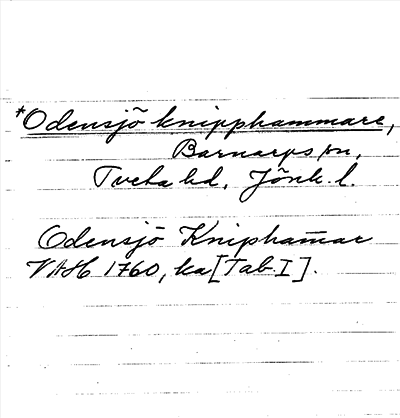 *Odensjö knipphammare,
Barnarps sn,
Tveta hd. Jönk. l.
Odensjö Knipham̄ar
VAH 1760, ka [Tab. I].